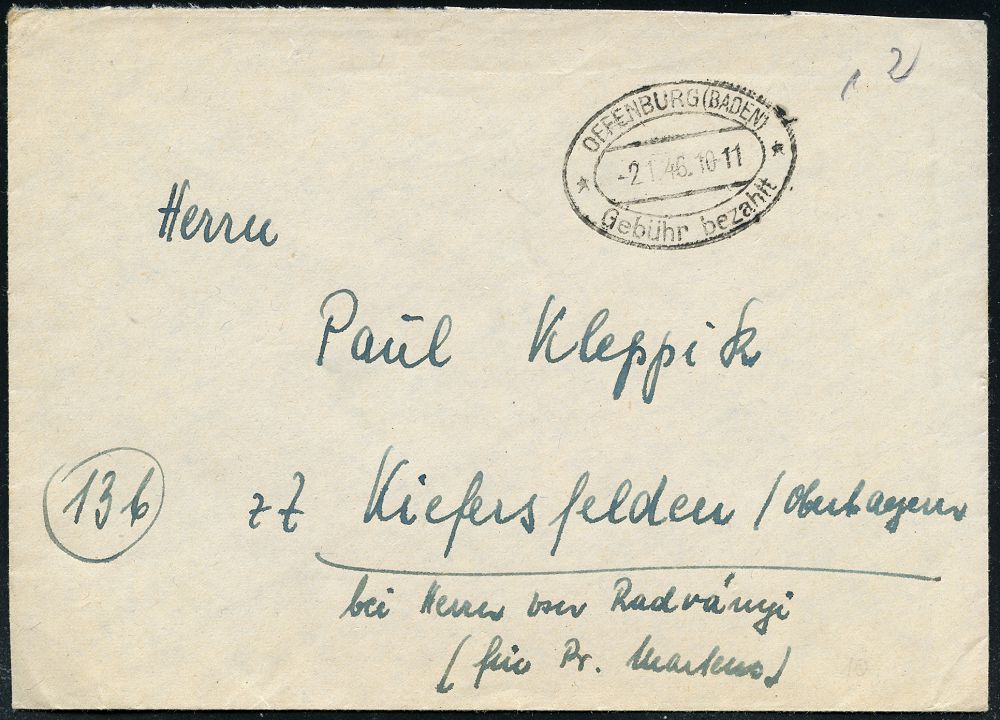 2
OFFENBURG (BADEN)
-2.1.46.10-11
Gebühr bezahlt
Herrn
Paul Kleppik
13b
zZ Kiefersfelden / Oberbayern
bei Herrn von Radványi
(für Dr. Martens)